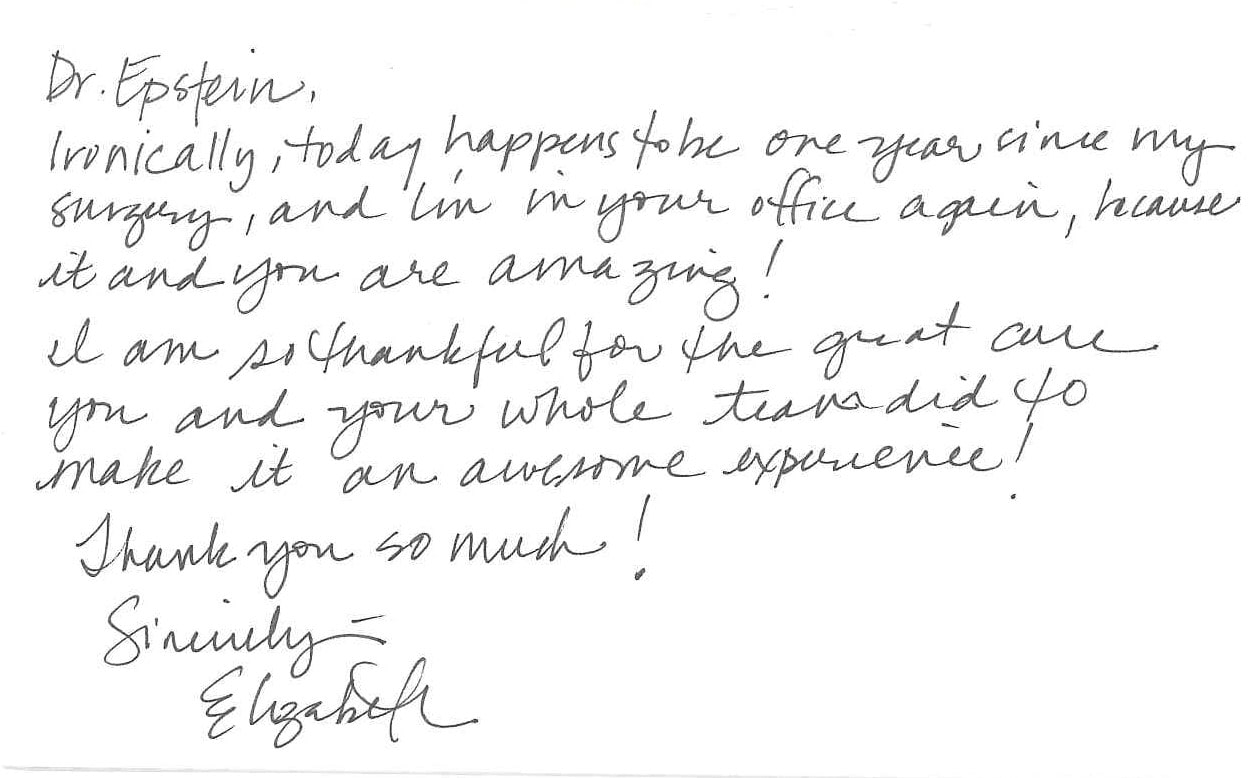 Dr. Epstein,
Ironically, today happens to be one year since my
surgery, and I'm in your office again, because
it and you are amazing!
I am so thankful for the great care
you and your whole team did to
make it an awesome experience!
Thank you so much!
Sincerely –
Elizabeth